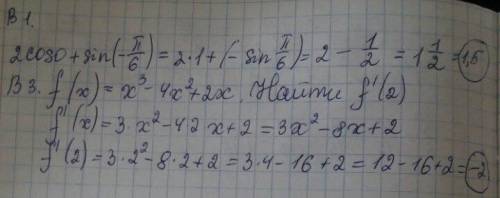 В 1.
2cos0 + sin(-π/6) = 2·1 + (- sin π/6) = 2 - 1/2 = 1 1/2 = 1,5
В 3. f(x) = x³ - 4x² + 2x. Найти f'(2)
f'(x) = 3·x² - 4·2x + 2 = 3x² - 8x + 2
f'(2) = 3·2² - 8·2 + 2 = 3·4 - 16 + 2 = 12 - 16 + 2 = -2